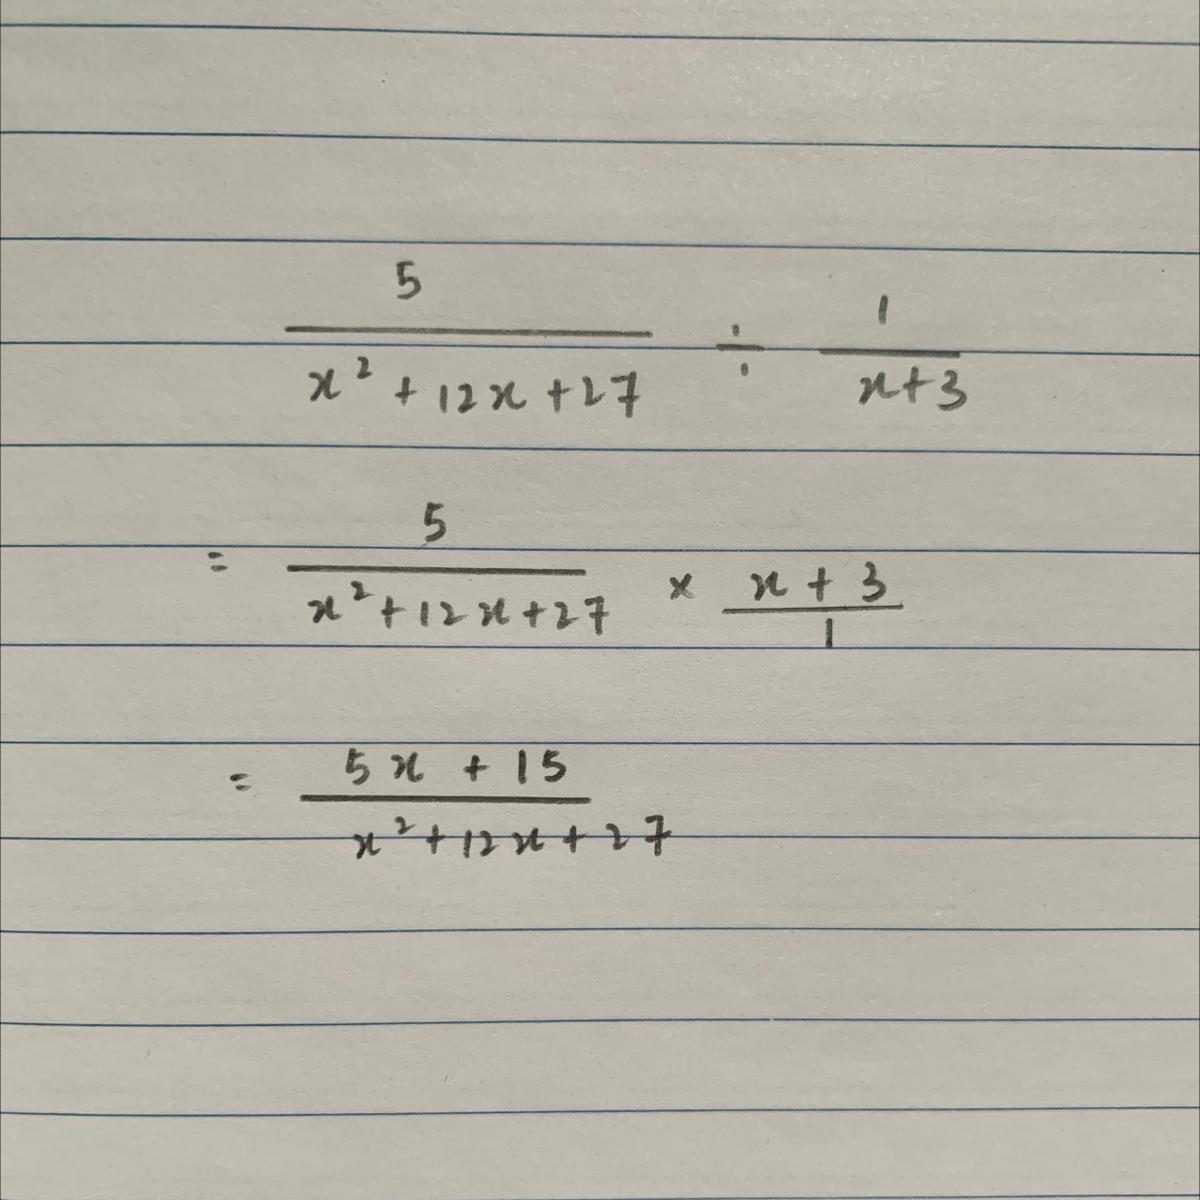 5/(x² + 12x + 27) ÷ 1/(x+3)
= 5/(x² + 12x + 27) × (x + 3)/1
= (5x + 15)/(x² + 12x + 27)